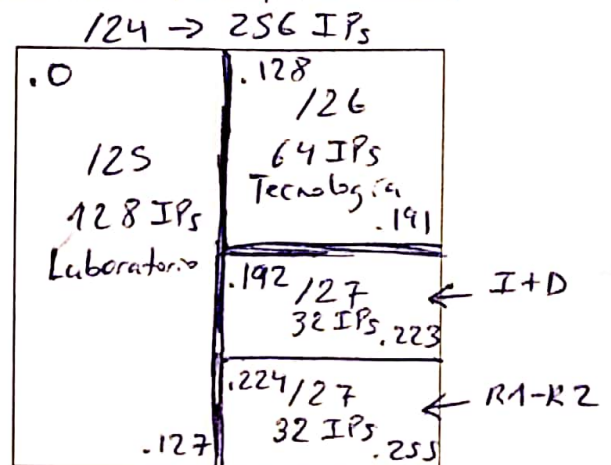 /24 → 256 IPs
.0
/25
128 IPs
Laboratorio
.127
.128
/26
64 IPs
Tecnología
.191
.192 /27
32 IPs .223
← I+D
.224 /27
32 IPs .255
← R1-R2